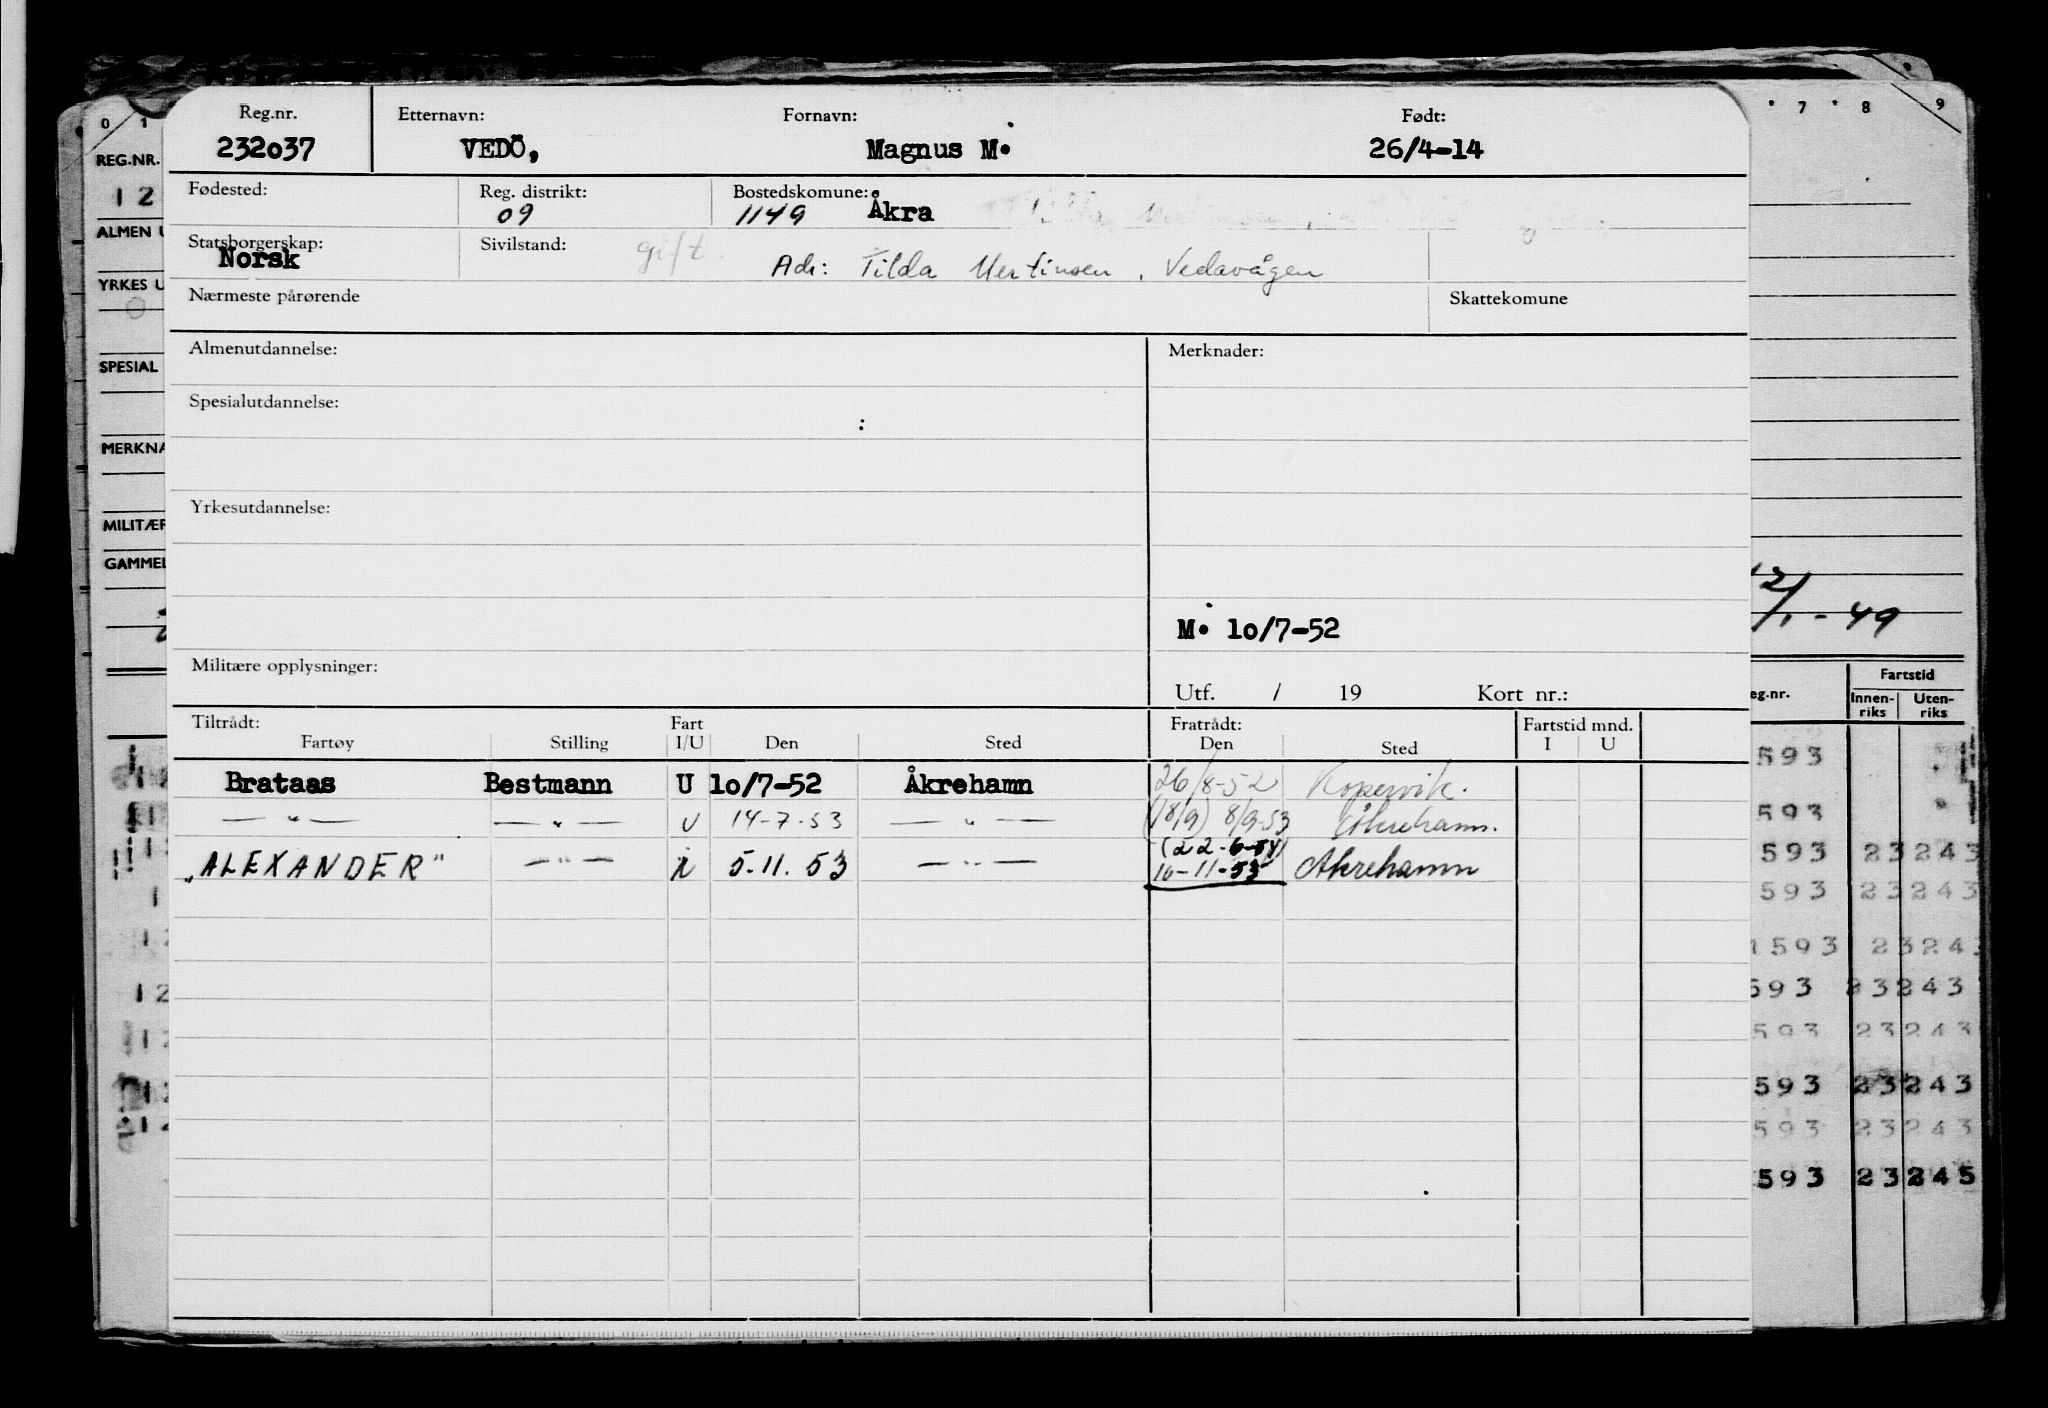 0 1 7 8 9
Reg.nr. Etternavn: Fornavn: Født:
232037 VEDÖ, Magnus M. 26/4-14
REG.NR.
12
Fødested: Reg. distrikt: Bostedskomune:
09 1149 Åkra
ALMEN U
Statsborgerskap: Sivilstand: gift.
Norsk Adr: Tilda Mertinsen, Vedavågen
YRKES U
Nærmeste pårørende Skattekomune
Almenutdannelse: Merknader:
SPESIAL
Spesialutdannelse:
:
MERKNA
Yrkesutdannelse:
MILITÆR
GAMMEL
12/1-49
M. 10/7-52
Militære opplysninger:
Utf. / 19 Kort nr.:
eg.nr. Fartstid
Innen-riks Uten-riks
Tiltrådt: Fart Fratrådt: Fartstid mnd.
Fartøy Stilling I/U Den Sted Den Sted I U
Brataas Bestmann U 10/7-52 Åkrehamn 26/8-52 Kopervik.
— " — — " — U 14-7-53 — " — (18/9) 8/9-53 Åkrehamn.
(22-6-54)
"ALEXANDER" — " — 5.11.53 — " — 10-11-53 Åkrehamn
593
593
593 23 243
593 23 243
1593 23 243
593 23 243
593 23 243
593 23 243
593 23 243
593 23 245